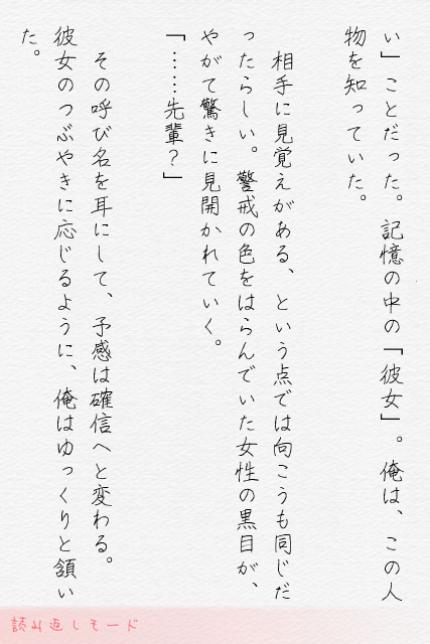 い」ことだった。記憶の中の「彼女」。俺は、この人
物を知っていた。
　相手に見覚えがある、という点では向こうも同じだ
ったらしい。警戒の色をはらんでいた女性の黒目が、
やがて驚きに見開かれていく。
「……先輩？」
　その呼び名を耳にして、予感は確信へと変わる。
彼女のつぶやきに応じるように、俺はゆっくりと頷い
た。
読み返しモード